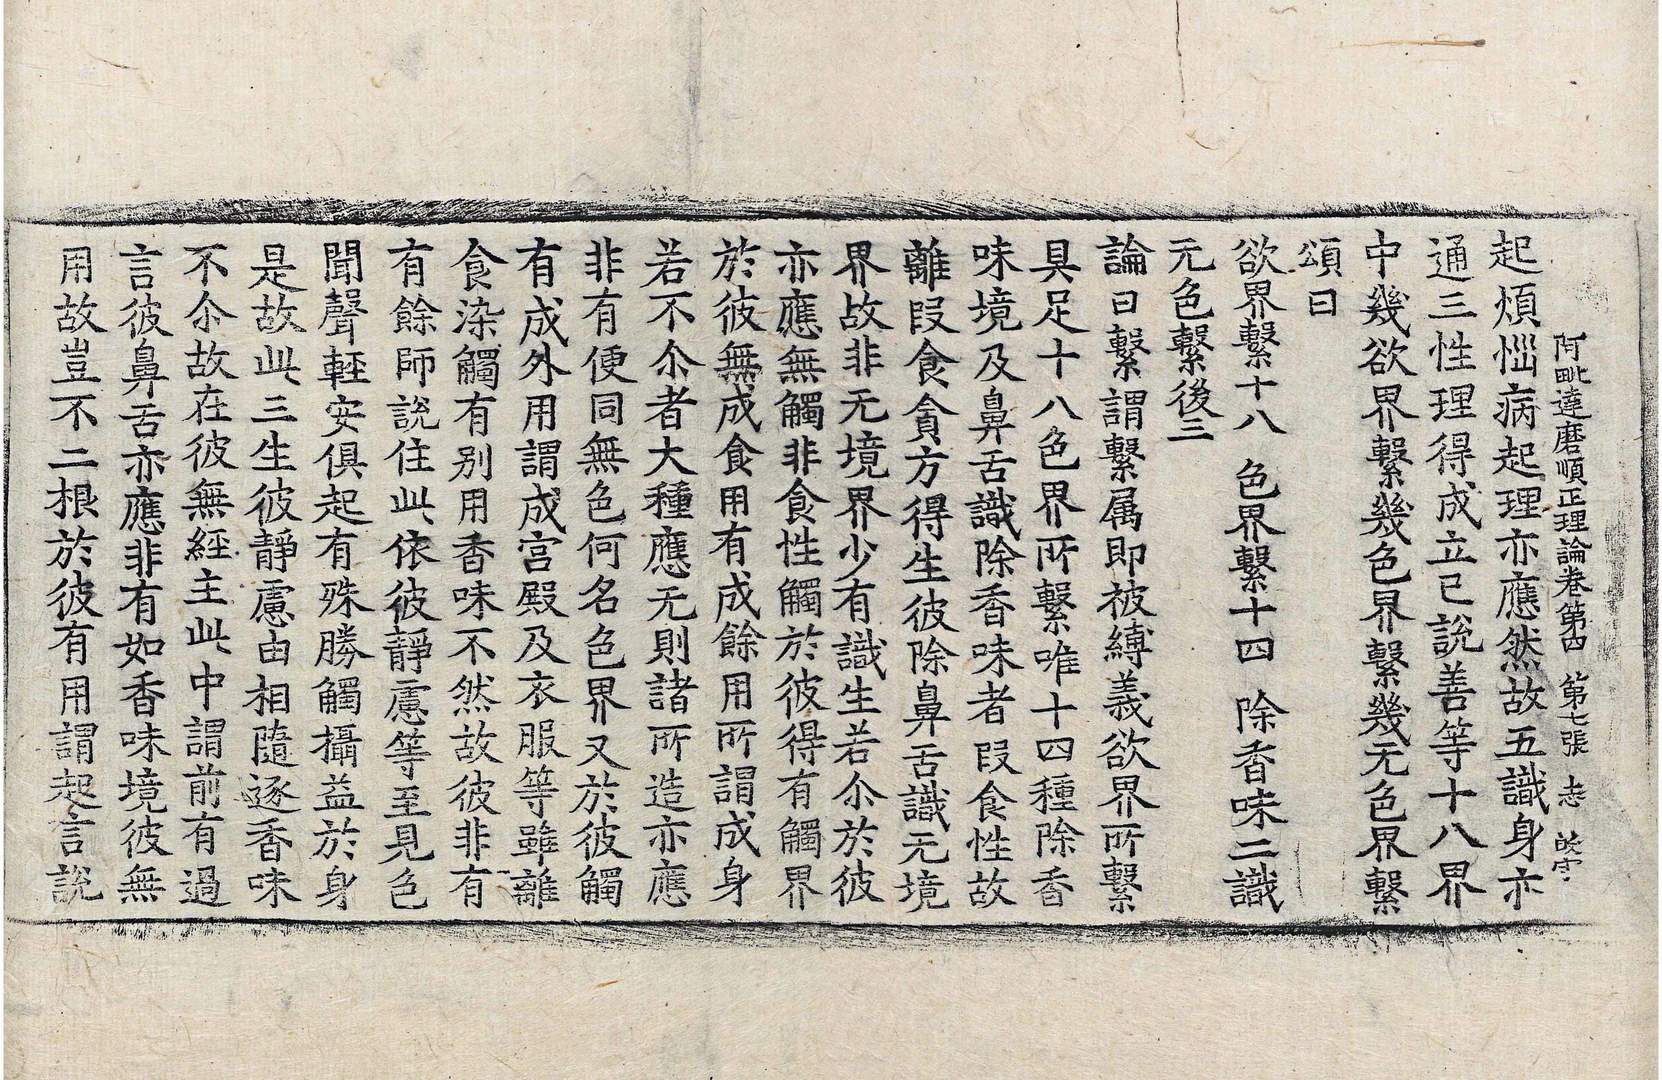 阿毗達磨順正理論卷第四　第七張　志
起煩惱病起理亦應然故五識身亦
通三性理得成立已說善等十八界
中幾欲界繫幾色界繫幾无色界繫
頌曰
欲界繫十八　色界繫十四　除香味二識
无色繫後三
論曰繫謂繫属即被縛義欲界所繫
具足十八色界所繫唯十四種除香
味境及鼻舌識除香味者段食性故
離段食貪方得生彼除鼻舌識无境
界故非无境界少有識生若尒於彼
亦應無觸非食性觸於彼得有觸界
於彼無成食用有成餘用所謂成身
若不尒者大種應无則諸所造亦應
非有便同無色何名色界又於彼觸
有成外用謂成宮殿及衣服等雖離
食染觸有別用香味不然故彼非有
有餘師說住此依彼靜慮等至見色
聞聲輕安俱起有殊勝觸攝益於身
是故此三生彼靜慮由相隨逐香味
不尒故在彼無經主此中謂前有過
言彼鼻舌亦應非有如香味境彼無
用故豈不二根於彼有用謂起言說